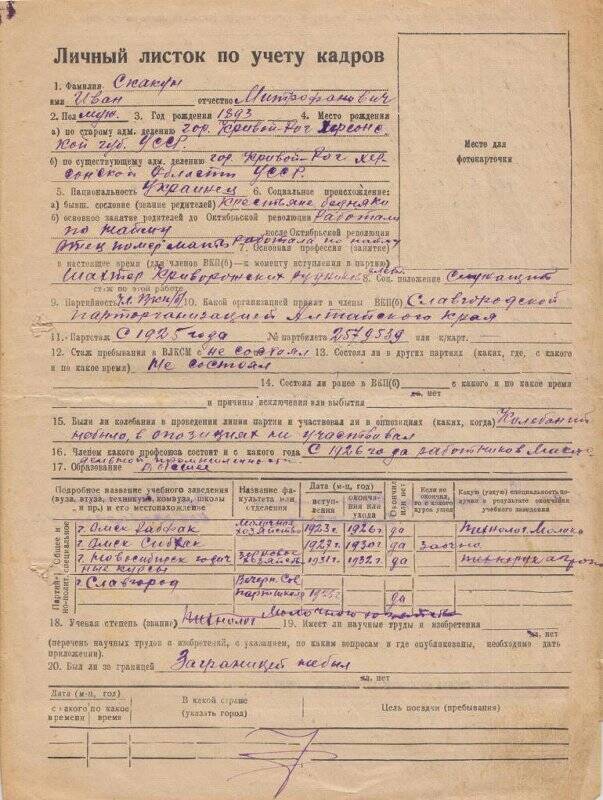 Личный листок по учету кадров
Место для
фотокарточки
1. Фамилия Скакун
имя Иван отчество Митрофанович
2. Пол муж. 3. Год рождения 1893 4. Место рождения
а) по старому адм. делению гор. Кривой-Рог Херсонс-
кой губ. УССР.
б) по существующему адм. делению гор. Кривой-Рог Хер-
сонской Области УССР.
5. Национальность Украинец 6. Социальное происхождение:
а) бывш. сословие (звание родителей) Крестьяне бедняки
б) основное занятие родителей до Октябрьской революции Работали
по найму после Октябрьской революции
Отец помер мать работала по найму 7. Основная профессия (занятие)
в настоящее время (для членов ВКП(б) — к моменту вступления в партию)
Шахтер Криворожских рудников 8. Соц. положение Служащий
стаж по этой работе
9. Партийность чл. ВКП(б) 10. Какой организацией принят в члены ВКП(б) Славгородской
Парторганизацией Алтайского края
11. Партстаж С 1925 года № партбилета 2579539 или к/карт.
12. Стаж пребывания в ВЛКСМ с не состоял 13. Состоял ли в других партиях (каких, где, с какого
и по какое время) Не состоял
14. Состоял ли ранее в ВКП(б) с какого и по какое время
да, нет
и причины исключения или выбытия
15. Были ли колебания в проведении линии партии и участвовал ли в оппозициях (каких, когда) Колебаний
небыло, в опозициях не участвовал
16. Членом какого профсоюза состоит и с какого года С 1926 года работников Масло
дельной промышленности
17. Образование Высшее
Подробное название учебного заведения
(вуза, втуза, техникума, комвуза, школы
и пр.) и его местонахождение
Название фа-
культета или
отделения
Дата (м-ц, год)
вступ-
ления
оконча-
ния или
ухода
Окончил
или нет
Если не
окончил,
то с какого
курса ушел
Какую (узкую) специальность получил
в результате окончания
учебного заведения
Общее и
специальное
г. Омск Рабфак Молочное хозяйство 1923г. 1926г. да Технолог Молока
г. Омск Сибхак 1927г. 1930г. да Заочно
г. Новосибирск годич-
ные курсы хозяйств 1931г. 1932г. да
Партий-
но-полит.
г. Славгород Вечерн. Сов
партшкола да
18. Ученая степень (звание) Технолог Молочного 19. Имеет ли научные труды и изобретения
да, нет
(перечень научных трудов и изобретений, с указанием, по каким вопросам и где опубликованы, необходимо дать
приложении).
20. Был ли за границей Заграницей небыл
да, нет
Дата (м-ц, год)
с какого
времени
по какое
время
В какой стране
(указать город)
Цель поездки (пребывания)